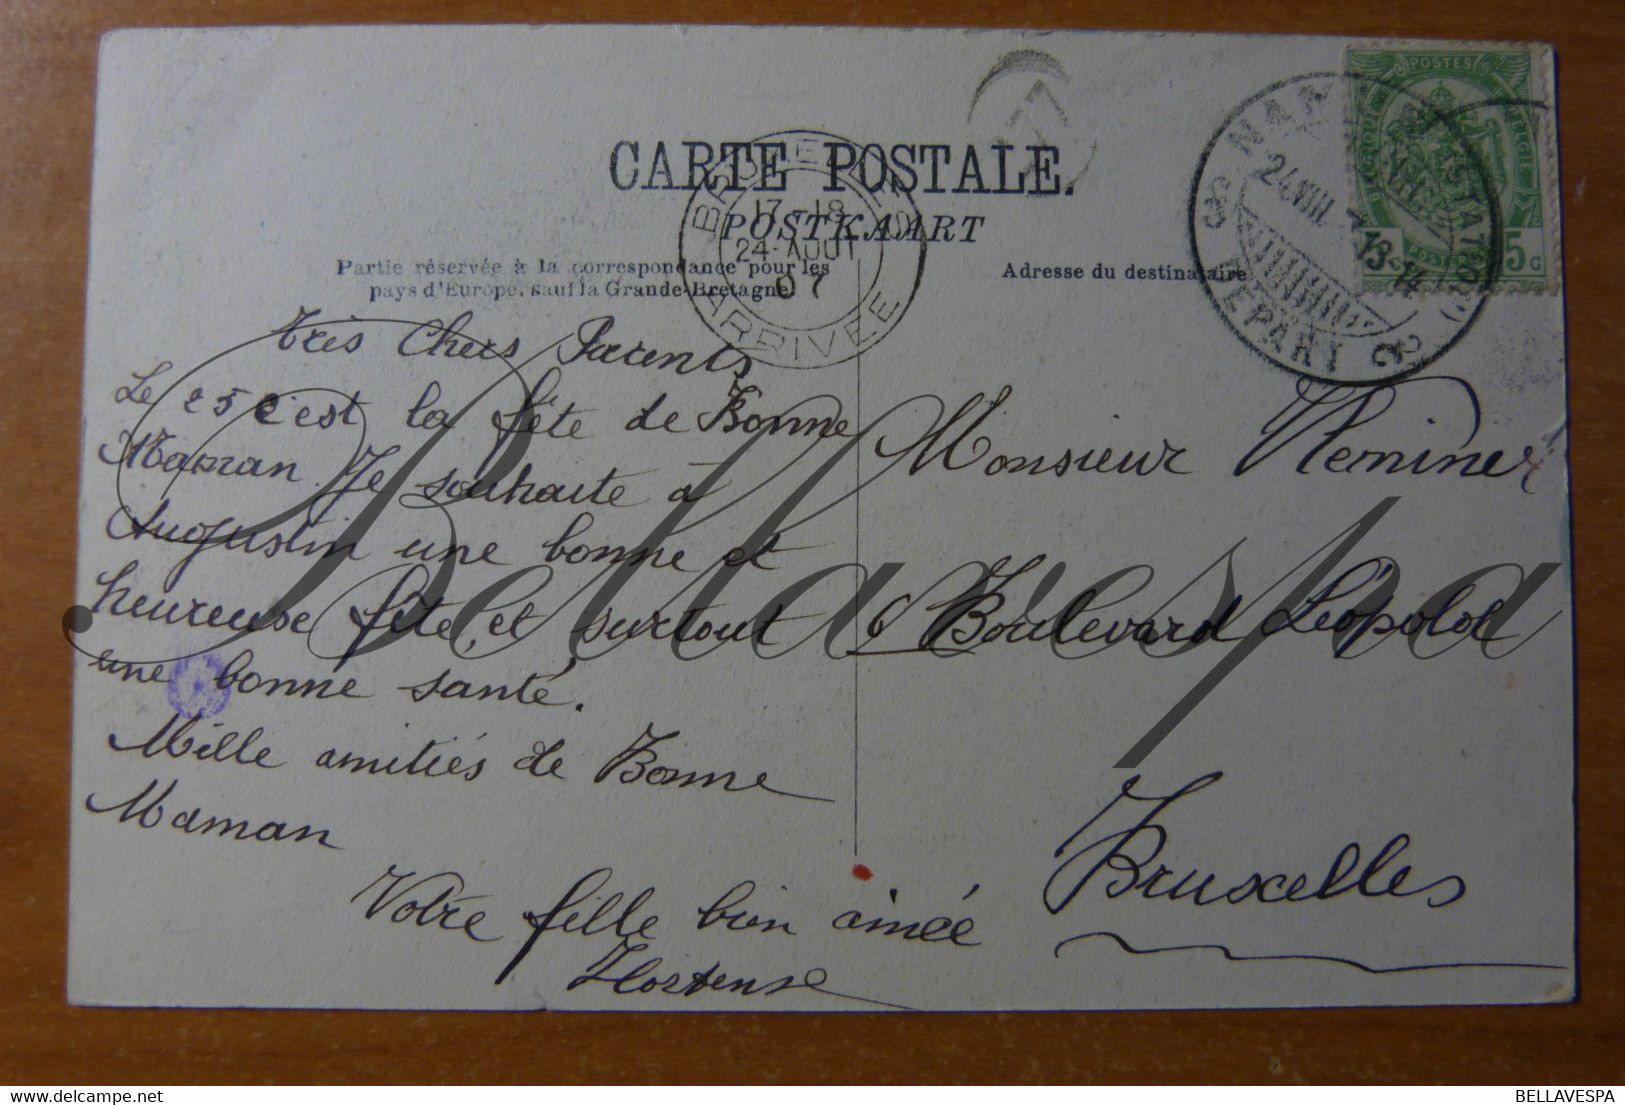 CARTE POSTALE.
POSTKAART
Partie réservée à la correspondance pour les
pays d'Europe, sauf la Grande-Bretagne
Adresse du destinataire
24 AOUT
07
ARRIVEE
24 VIII
13-14
DEPART
POSTES
BELGIQUE
BELGIE
5 C
Très Chers Parents
Le 25 c'est la fête de Bonne
Maman. Je souhaite à
Augustin une bonne et
heureuse fête, et surtout
une bonne santé.
Mille amitiés de Bonne
Maman
Votre fille bien aimée
Hortense
Monsieur
6 Boulevard Léopold
Bruxelles
Bellavespa
BELLAVESPA